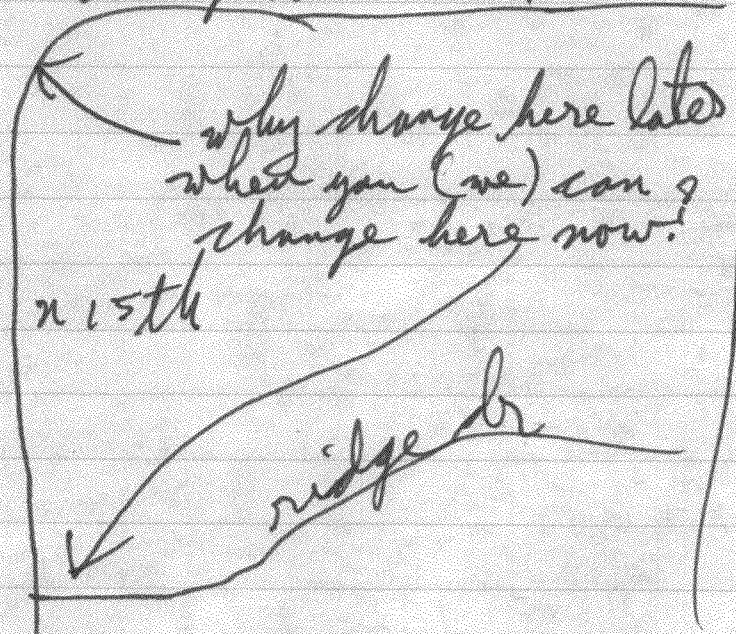 why change here later
when you (we) can
change here now?
n 15th
ridge dr